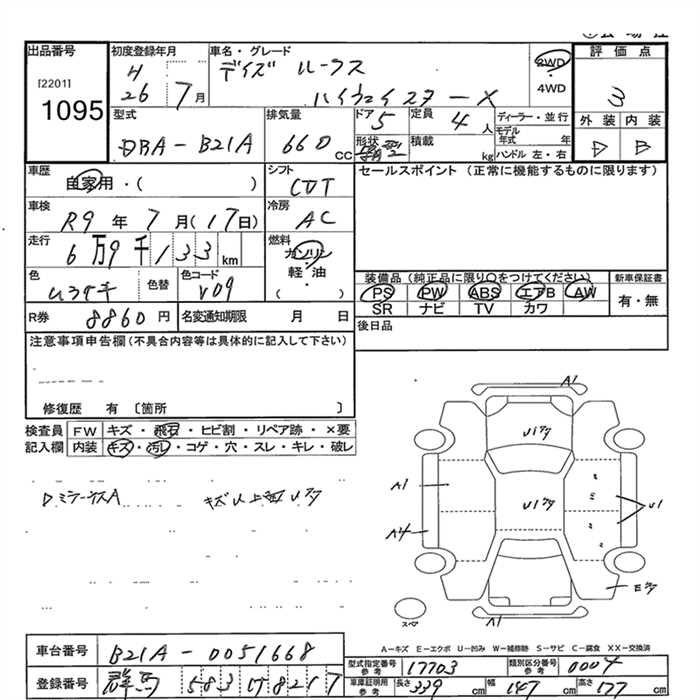 出品番号
[2201]
1095
初度登録年月
H
26 7月
車名・グレード
デイズ ルークス
ハイウェイスター X
2WD
・
4WD
評価点
3
外装 内装
D B
型式
DBA - B21A
排気量
660 CC
ドア 5
形状
定員 4 人
積載 kg
ディーラー・並行
モデル年式 年
ハンドル 左・右
車歴
自家用・( )
シフト
CVT
セールスポイント (正常に機能するものに限ります)
車検
R9 年 7 月(17日)
冷房
AC
走行
6万9千133 km
燃料
ガソリン
・
軽・油
( )
色
色替
色コード
V09
装備品(純正品に限り○をつけてください)
PS PW ABS エアB AW
SR ナビ TV カワ
新車保証書
有・無
R券 8860 円
名変通知期限 月 日
後日品
注意事項申告欄(不具合内容等は具体的に記入して下さい)
修復歴 有 〔箇所 〕
検査員記入欄
FW キズ・飛石・ヒビ割・リペア跡・×要
内装 キズ・汚レ・コゲ・穴・スレ・キレ・破レ
A1
A1
A4
U1
A1
スペ
A−キズ E−エクボ U−凹み W−補修跡 S−サビ C−腐食 XX−交換済
車台番号 B21A - 0051668
型式指定番号 参考 17703
類別区分番号 参考 0004
登録番号 群馬 583 い 8217
車庫証明用 参考 長さ 339 cm 幅 147 cm 高さ 177 cm